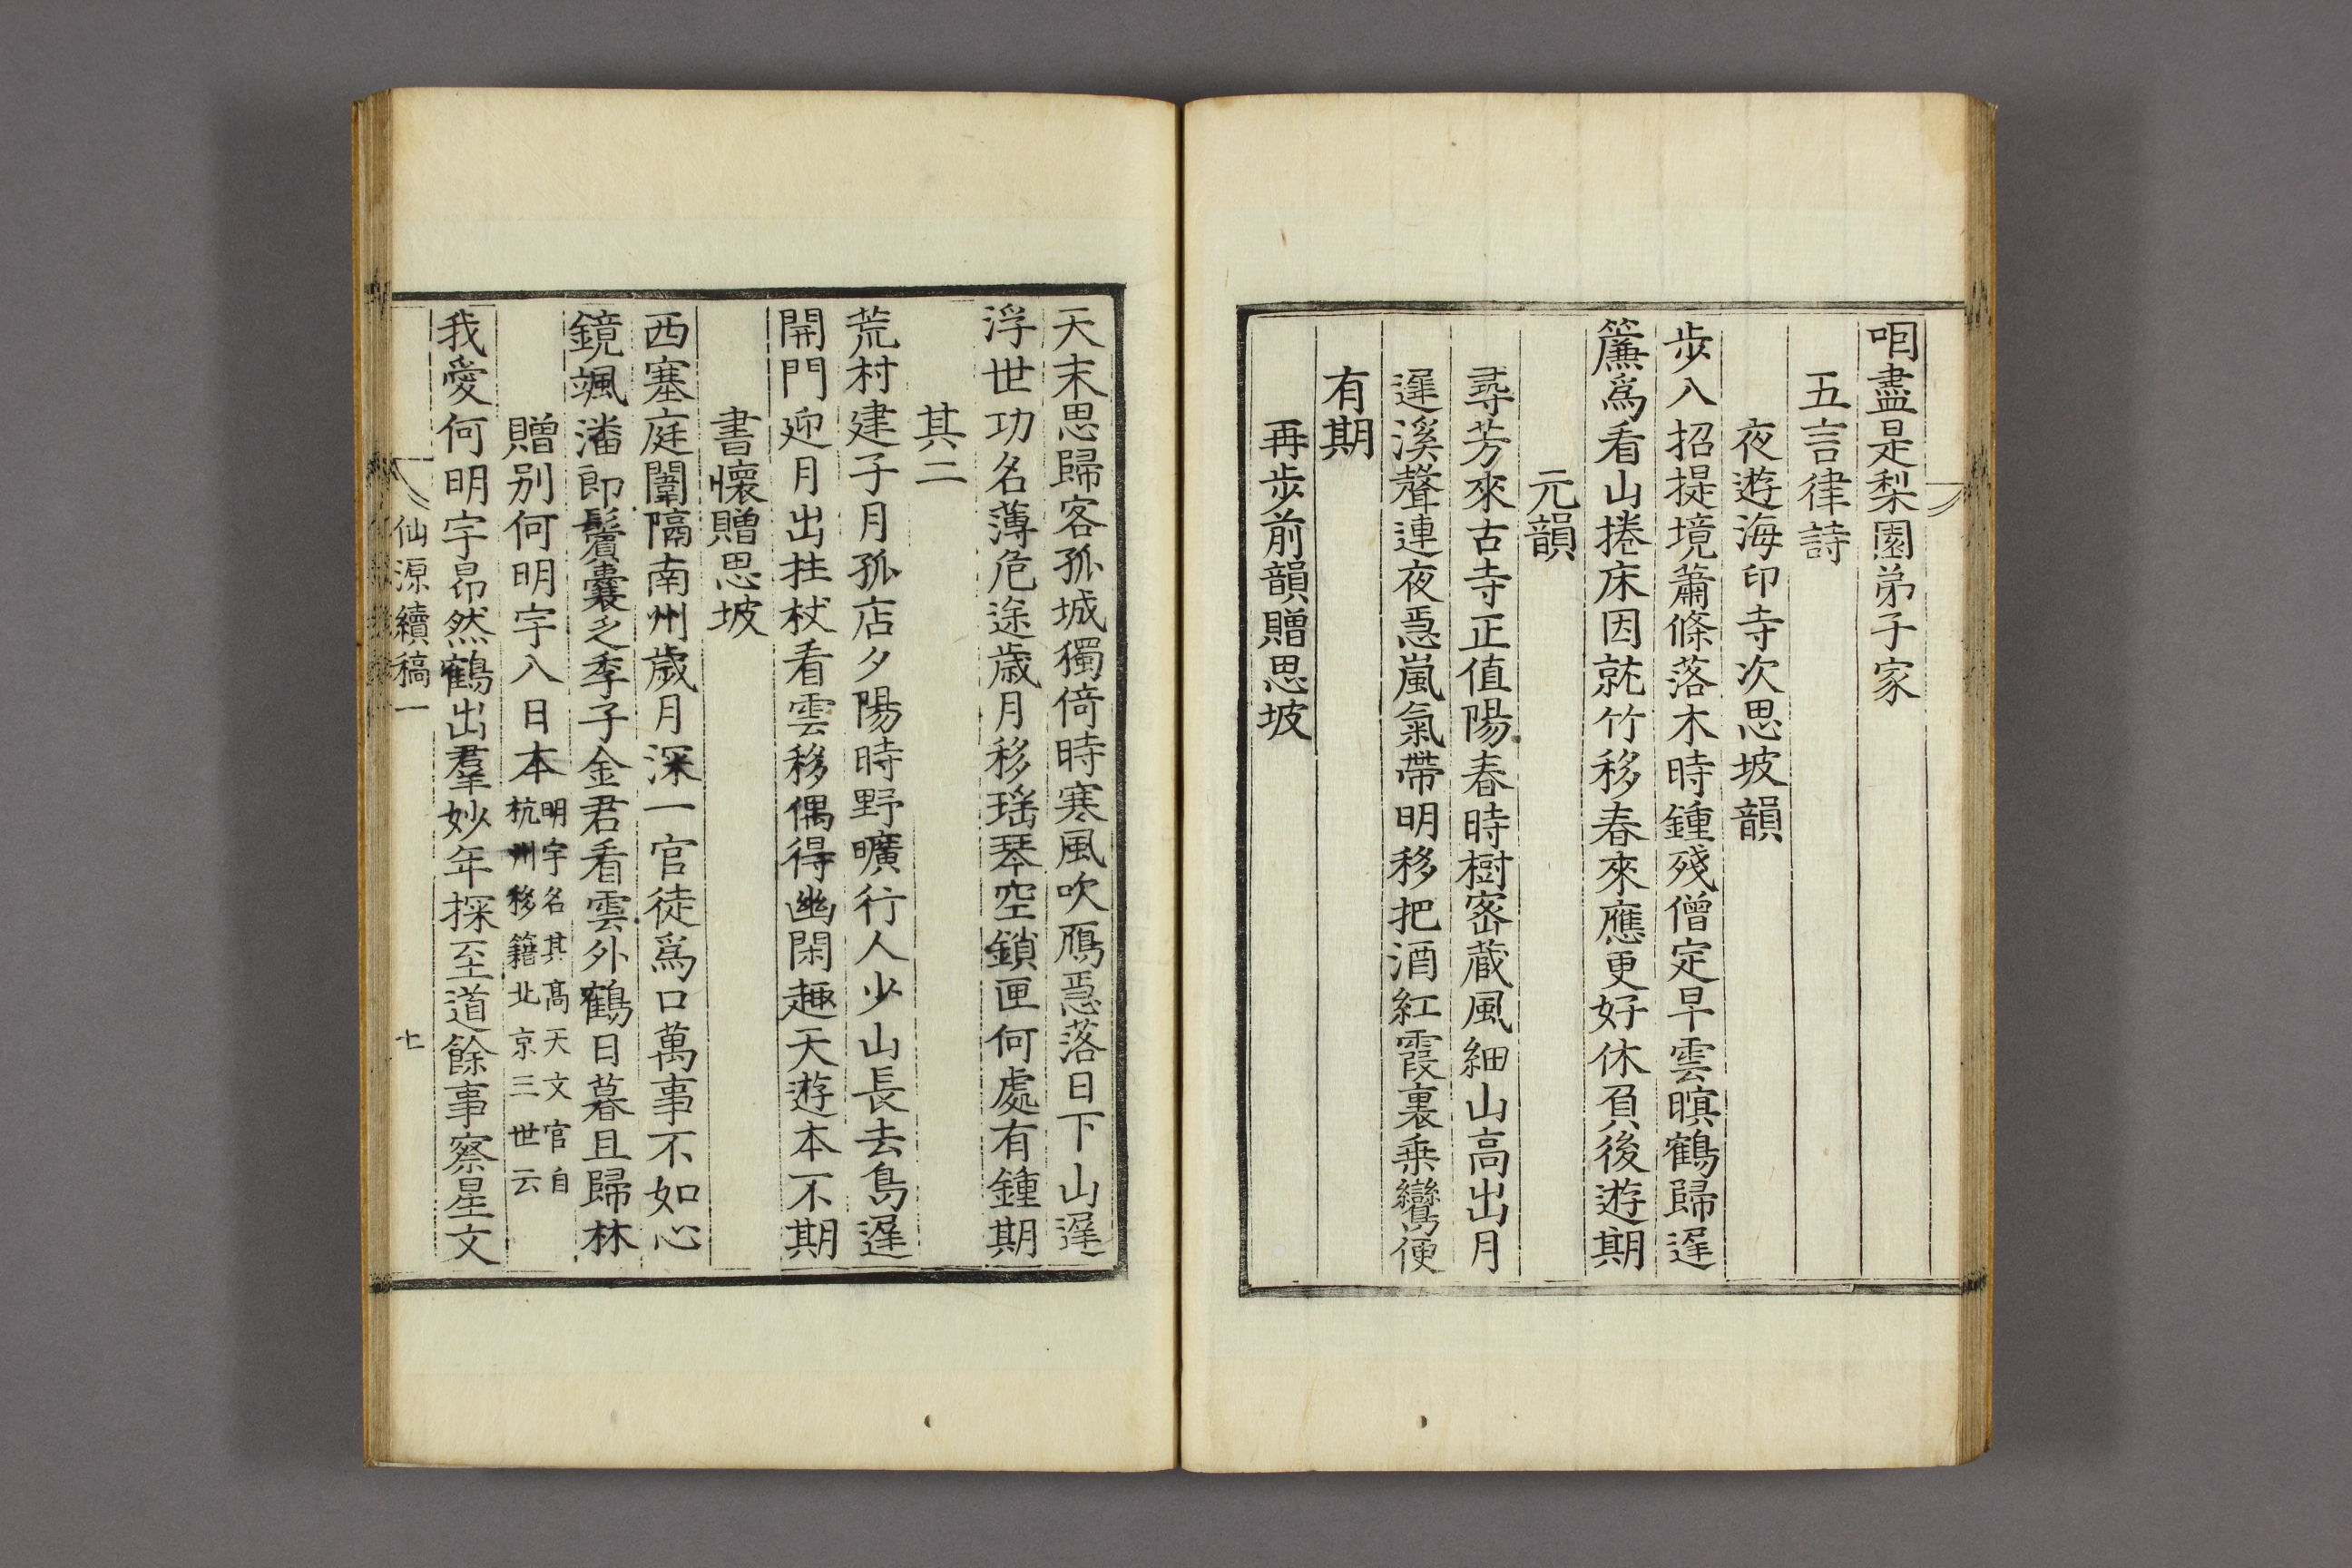 咱盡是梨園弟子家
五言律詩
夜遊海印寺次思坡韻
步入招提境蕭條落木時鍾殘僧定早雲暝鶴歸遲
簾爲看山捲床因就竹移春來應更好休負後遊期
元韻
尋芳來古寺正值陽春時樹密蔵風細山高出月
遲溪聲連夜急嵐氣帶明移把酒紅霞裏乗鸞便
有期
再步前韻贈思坡
天末思歸客孤城獨倚時寒風吹鴈急落日下山遲
浮世功名薄危途歲月移瑶琴空鎖匣何處有鍾期
其二
荒村建子月孤店夕陽時野曠行人少山長去鳥遲
開門迎月出拄杖看雲移偶得幽閑趣天遊本不期
書懷贈思坡
西塞庭闈隔南州歲月深一官徒爲口萬事不如心
鏡颯潘郎鬢囊乏季子金君看雲外鶴日暮且歸林
贈别何明宇入日本
明宇名其高天文官自
杭州移籍北京三世云
我愛何明宇昂然鶴出羣妙年探至道餘事察星文
仙源續稿一
七